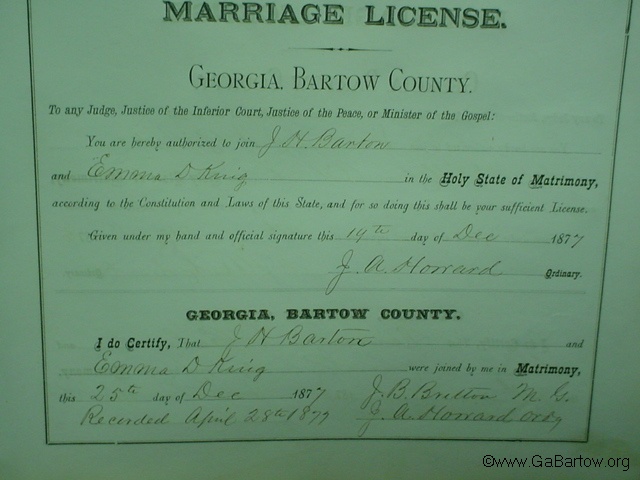 MARRIAGE LICENSE.
GEORGIA, BARTOW COUNTY.
To any Judge, Justice of the Inferior Court, Justice of the Peace, or Minister of the Gospel:
You are hereby authorized to join J H Barton
and Emma D King in the Holy State of Matrimony,
according to the Constitution and Laws of this State, and for so doing this shall be your sufficient License.
Given under my hand and official signature this 19th day of Dec 1877
J. A. Howard Ordinary.
GEORGIA, BARTOW COUNTY.
I do Certify, That J H Barton and
Emma D King were joined by me in Matrimony,
this 25th day of Dec 1877 J. B. Britton M. G.
Recorded April 28th 1879 J. A. Howard Ordy
©www.GaBartow.org